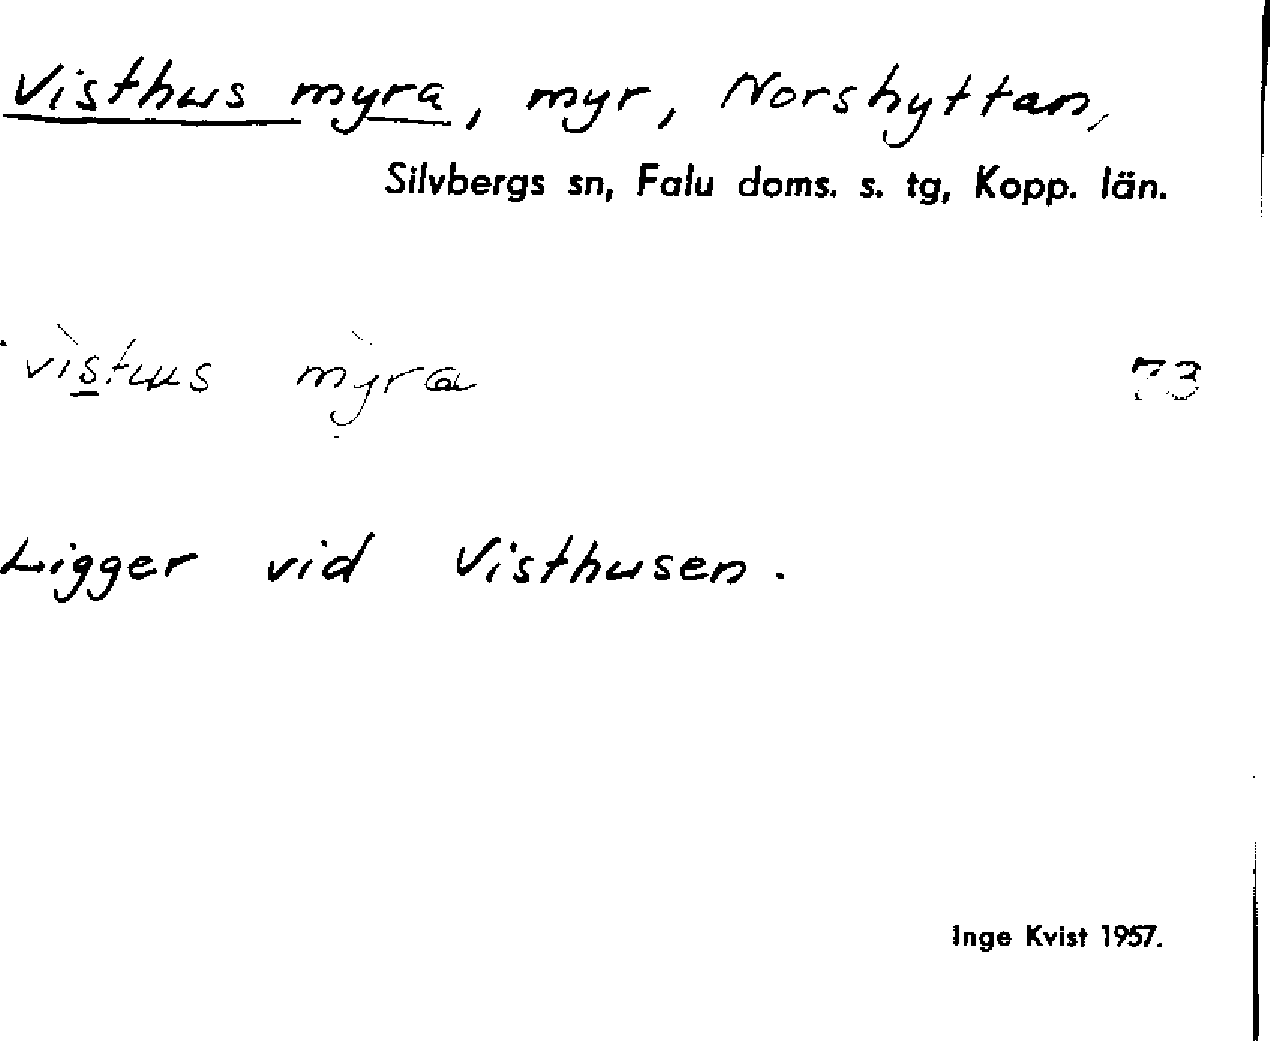 Visthus myra, myr, Norshyttan,
Silvbergs sn, Falu doms. s. tg, Kopp. län.
vistus myra 73
Ligger vid Visthusen.
Inge Kvist 1957.